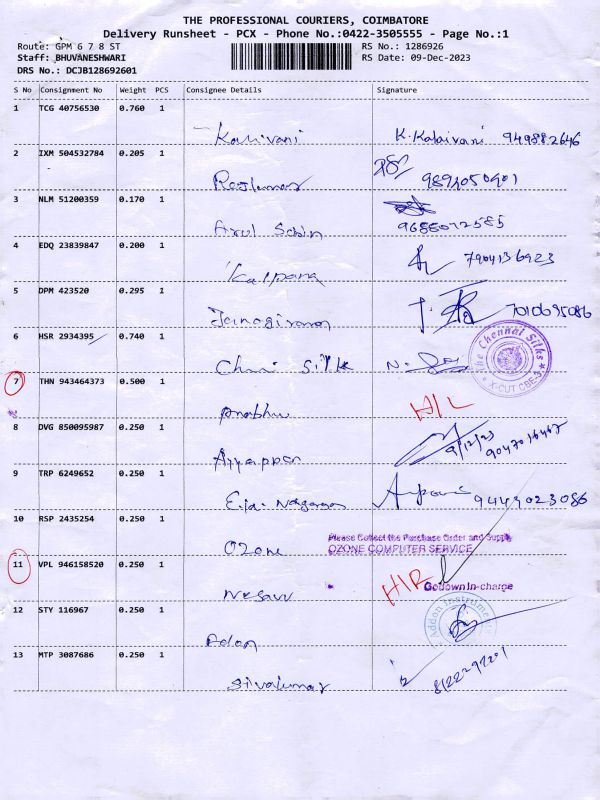 THE PROFESSIONAL COURIERS, COIMBATORE
Delivery Runsheet - PCX - Phone No.:0422-3505555 - Page No.:1
Route: GPM 6 7 8 ST RS No.: 1286926
Staff: BHUVANESHWARI RS Date: 09-Dec-2023
DRS No.: DCJB128692601
S No Consignment No Weight PCS Consignee Details Signature
1 TCG 40756530 0.760 1
Kalaivani K. Kalaivani 949882646
2 IXM 504532784 0.205 1
Rajkumar
3 NLM 51200359 0.170 1
Arul 9688072585
4 EDQ 23839847 0.200 1
Kalpana 7904136923
5 DPM 423520 0.295 1
7010695086
6 HSR 2934395 0.740 1
The Chennai Silks
X-CUT CBE-3
7 THN 943464373 0.500 1
Prabhu H/L
8 DVG 850095987 0.250 1
Ayyappan 9/12/23
9 TRP 6249652 0.250 1
9449023086
10 RSP 2435254 0.250 1
Please Collect the Purchase Order and
Ozone OZONE COMPUTER SERVICE
11 VPL 946158520 0.250 1
Godown In-charge
12 STY 116967 0.250 1
Addon Instruments
13 MTP 3087686 0.250 1
Sivakumar